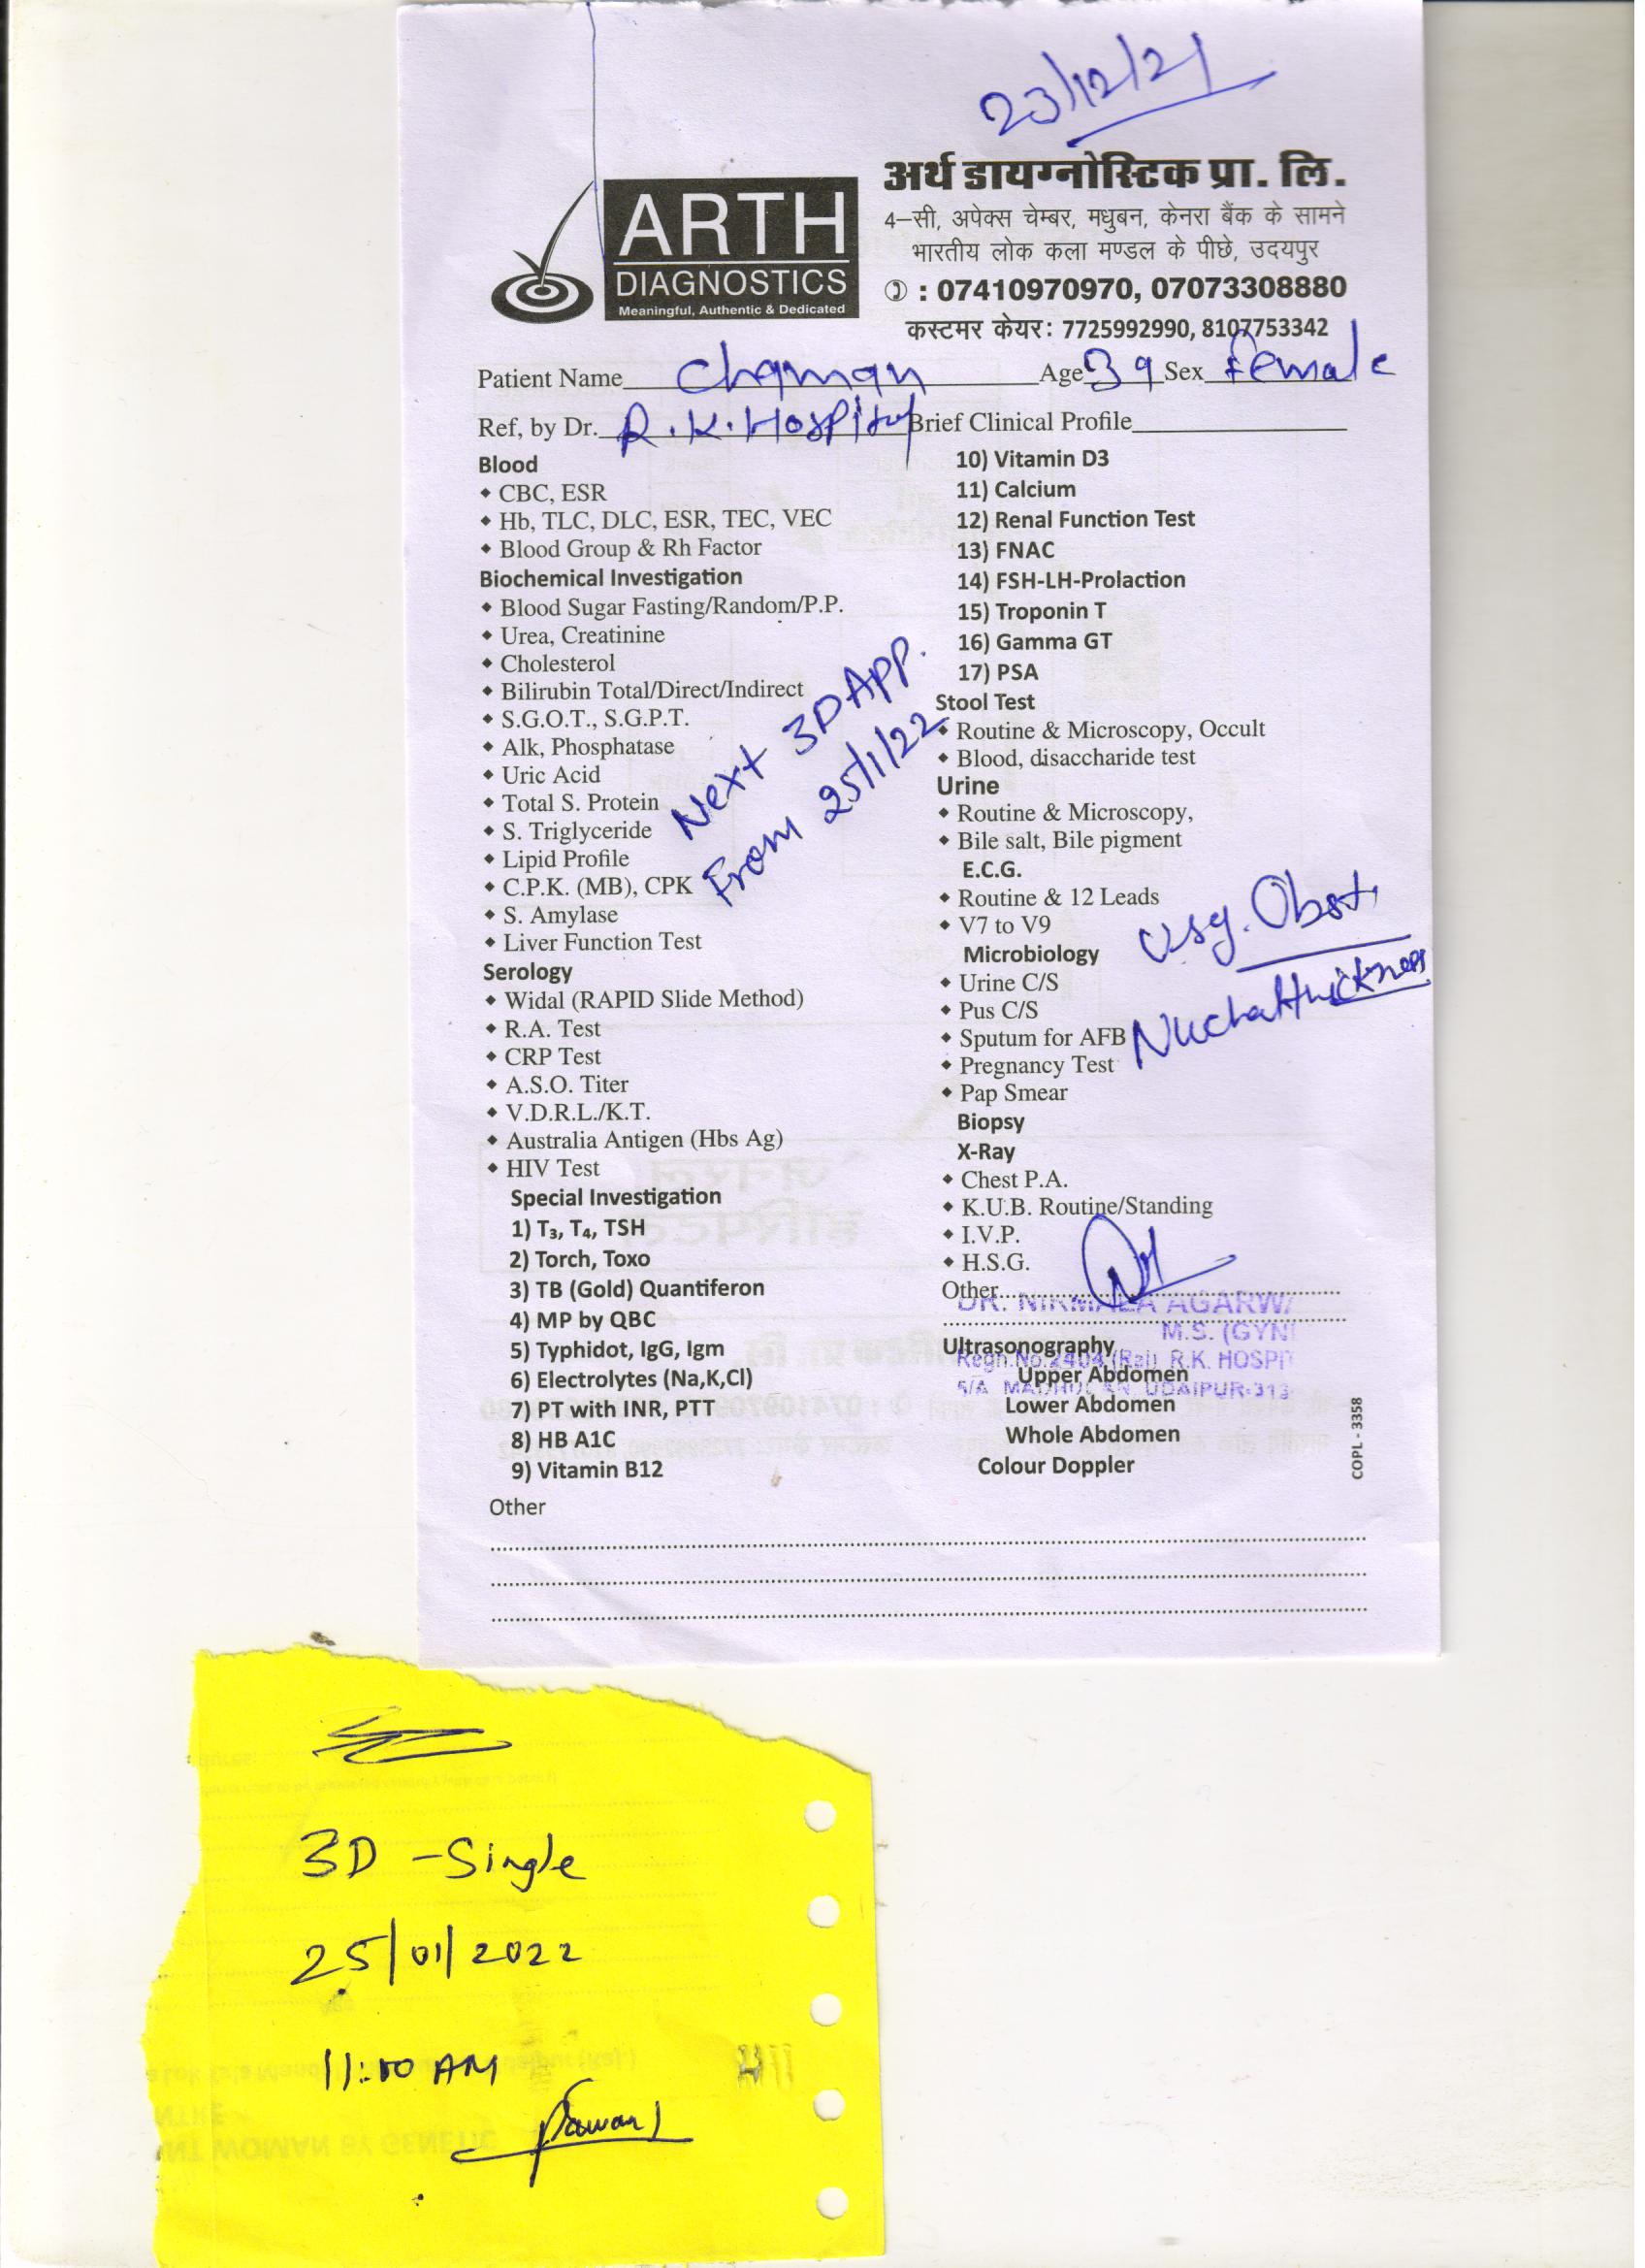 23/12/21
ARTH
DIAGNOSTICS
Meaningful, Authentic & Dedicated
अर्थ डायग्नोस्टिक प्रा. लि.
4–सी, अपेक्स चेम्बर, मधुबन, केनरा बैंक के सामने
भारतीय लोक कला मण्डल के पीछे, उदयपुर
: 07410970970, 07073308880
कस्टमर केयर: 7725992990, 8107753342
Patient Name Chaman Age 39 Sex Female
Ref, by Dr. R.K. Hospital Brief Clinical Profile
Blood
CBC, ESR
Hb, TLC, DLC, ESR, TEC, VEC
Blood Group & Rh Factor
Biochemical Investigation
Blood Sugar Fasting/Random/P.P.
Urea, Creatinine
Cholesterol
Bilirubin Total/Direct/Indirect
S.G.O.T., S.G.P.T.
Alk, Phosphatase
Uric Acid
Total S. Protein
S. Triglyceride
Lipid Profile
C.P.K. (MB), CPK
S. Amylase
Liver Function Test
Next 3D APP.
From 25/1/22
Serology
Widal (RAPID Slide Method)
R.A. Test
CRP Test
A.S.O. Titer
V.D.R.L./K.T.
Australia Antigen (Hbs Ag)
HIV Test
Special Investigation
1) T₃, T₄, TSH
2) Torch, Toxo
3) TB (Gold) Quantiferon
4) MP by QBC
5) Typhidot, IgG, Igm
6) Electrolytes (Na,K,Cl)
7) PT with INR, PTT
8) HB A1C
9) Vitamin B12
10) Vitamin D3
11) Calcium
12) Renal Function Test
13) FNAC
14) FSH-LH-Prolaction
15) Troponin T
16) Gamma GT
17) PSA
Stool Test
Routine & Microscopy, Occult
Blood, disaccharide test
Urine
Routine & Microscopy,
Bile salt, Bile pigment
E.C.G.
Routine & 12 Leads
V7 to V9
Microbiology
Urine C/S
Pus C/S
Sputum for AFB
Pregnancy Test
Pap Smear
Usg. Obst.
Nuchal thickness
Biopsy
X-Ray
Chest P.A.
K.U.B. Routine/Standing
I.V.P.
H.S.G.
Other
DR. NIRMALA AGARWA
M.S. (GYN
Regn.No.2404 (Raj) R.K. HOSPI
5/A MADHUBAN, UDAIPUR-313
Ultrasonography
Upper Abdomen
Lower Abdomen
Whole Abdomen
Colour Doppler
COPL - 3358
Other
3D - Single
25/01/2022
11:00 AM